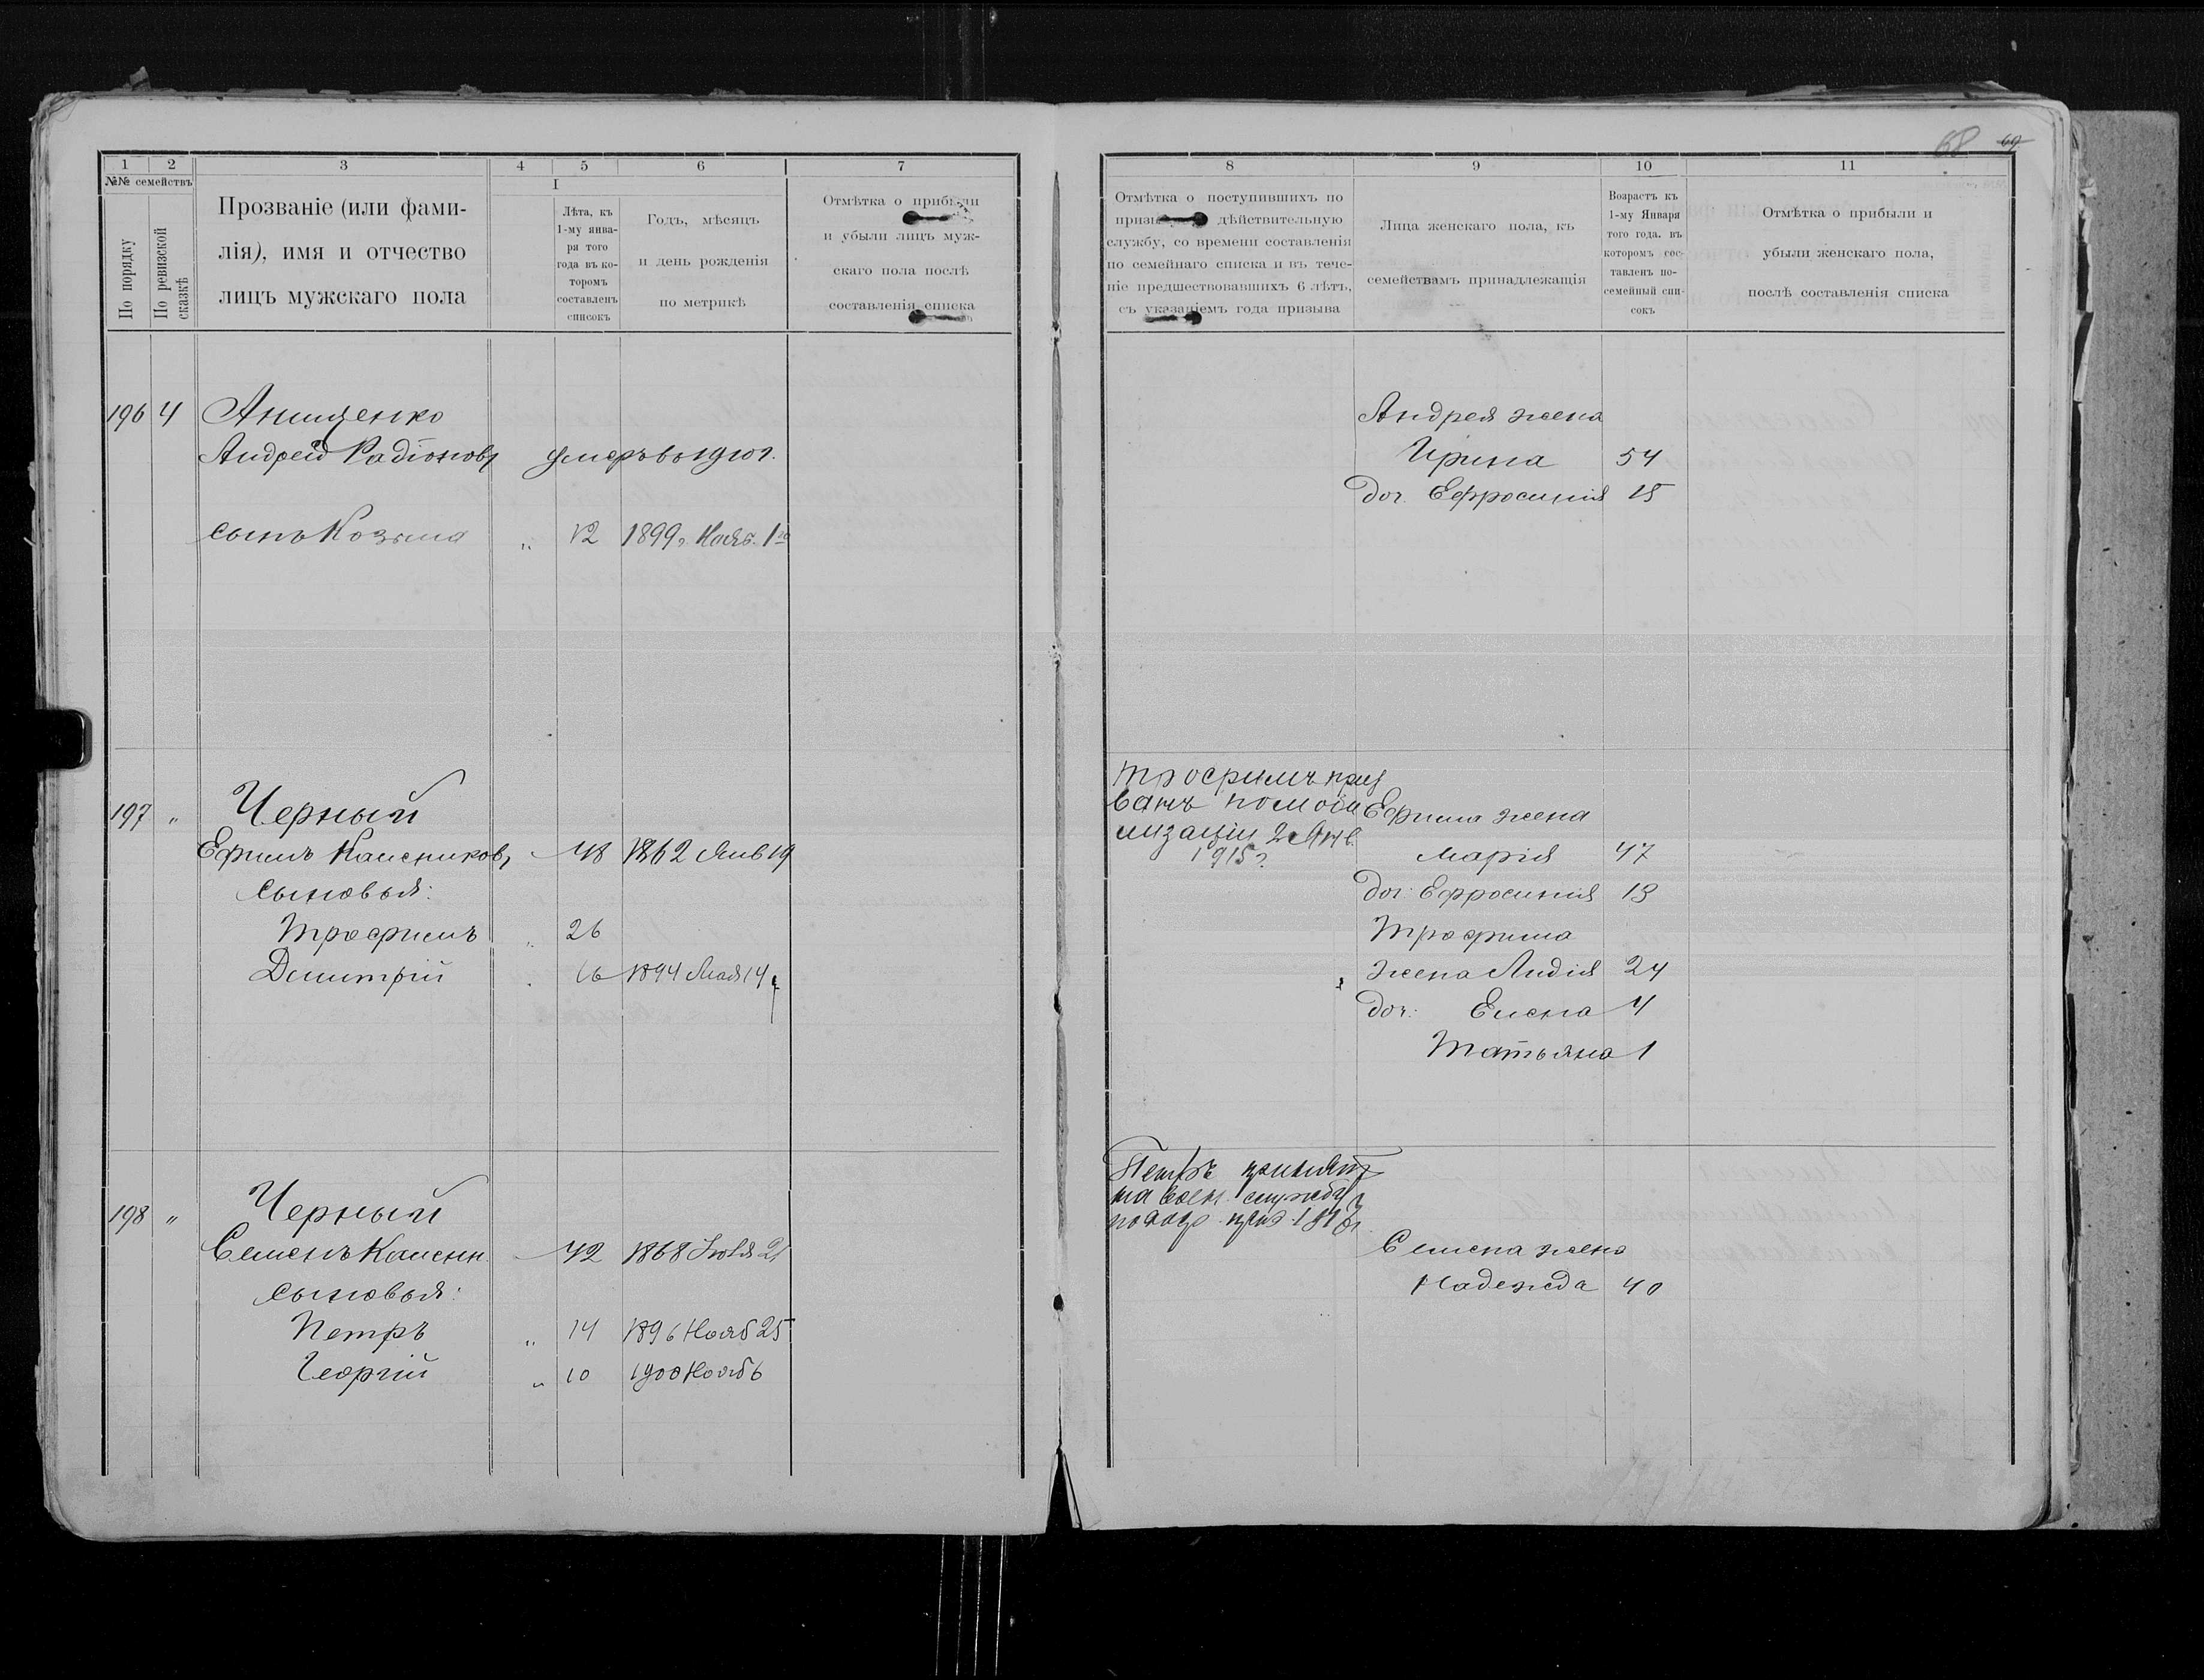 68 69
1 2 3 4 5 6 7
№№ семействъ
По порядку
По ревизской сказкѣ
Прозваніе (или фами-
лія), имя и отчество
лицъ мужскаго пола
I
Лѣта, къ
1-му янва-
ря того
года въ ко-
торомъ
составленъ
списокъ
Годъ, мѣсяцъ
и день рожденія
по метрикѣ
Отмѣтка о прибыли
и убыли лицъ муж-
скаго пола послѣ
составленія списка
196 4 Анищенко
Андрей Радіоновъ умеръ въ 1910 г.
сынъ Козьма " 12 1899 г. Нояб. 1го
197 " Черный
Ефимъ 48 1862 Янв 19
сыновья:
Трофимъ " 26
Димитрій 16 1894 Мая 14
198 " Черный
Семенъ 42 1868 21
сыновья:
Петръ " 14 1896 Нояб 25
Георгій " 10 1900 Нояб 6
8 9 10 11
Отмѣтка о поступившихъ по
дѣйствительную
службу, со времени составленія
по семейнаго списка и въ тече-
ніе предшествовавшихъ 6 лѣтъ,
съ указаніемъ года призыва
Лица женскаго пола, къ
семействамъ принадлежащія
Возрастъ къ
1-му Января
того года, въ
которомъ сос-
тавленъ по-
семейный спи-
сокъ
Отмѣтка о прибыли и
убыли женскаго пола,
послѣ составленія списка
Андрея жена
Ирина 54
доч. Ефросинія 15
Трофимъ приз
ванъ по моби
лизаціи 2 Янв.
1915 г.
Ефима жена
Марія 47
доч: Ефросинія 13
Трофима
жена Лидія 24
доч: Елена 4
Татьяна 1
Петръ принятъ
на воен. службу
Семена жена
Надежда 40